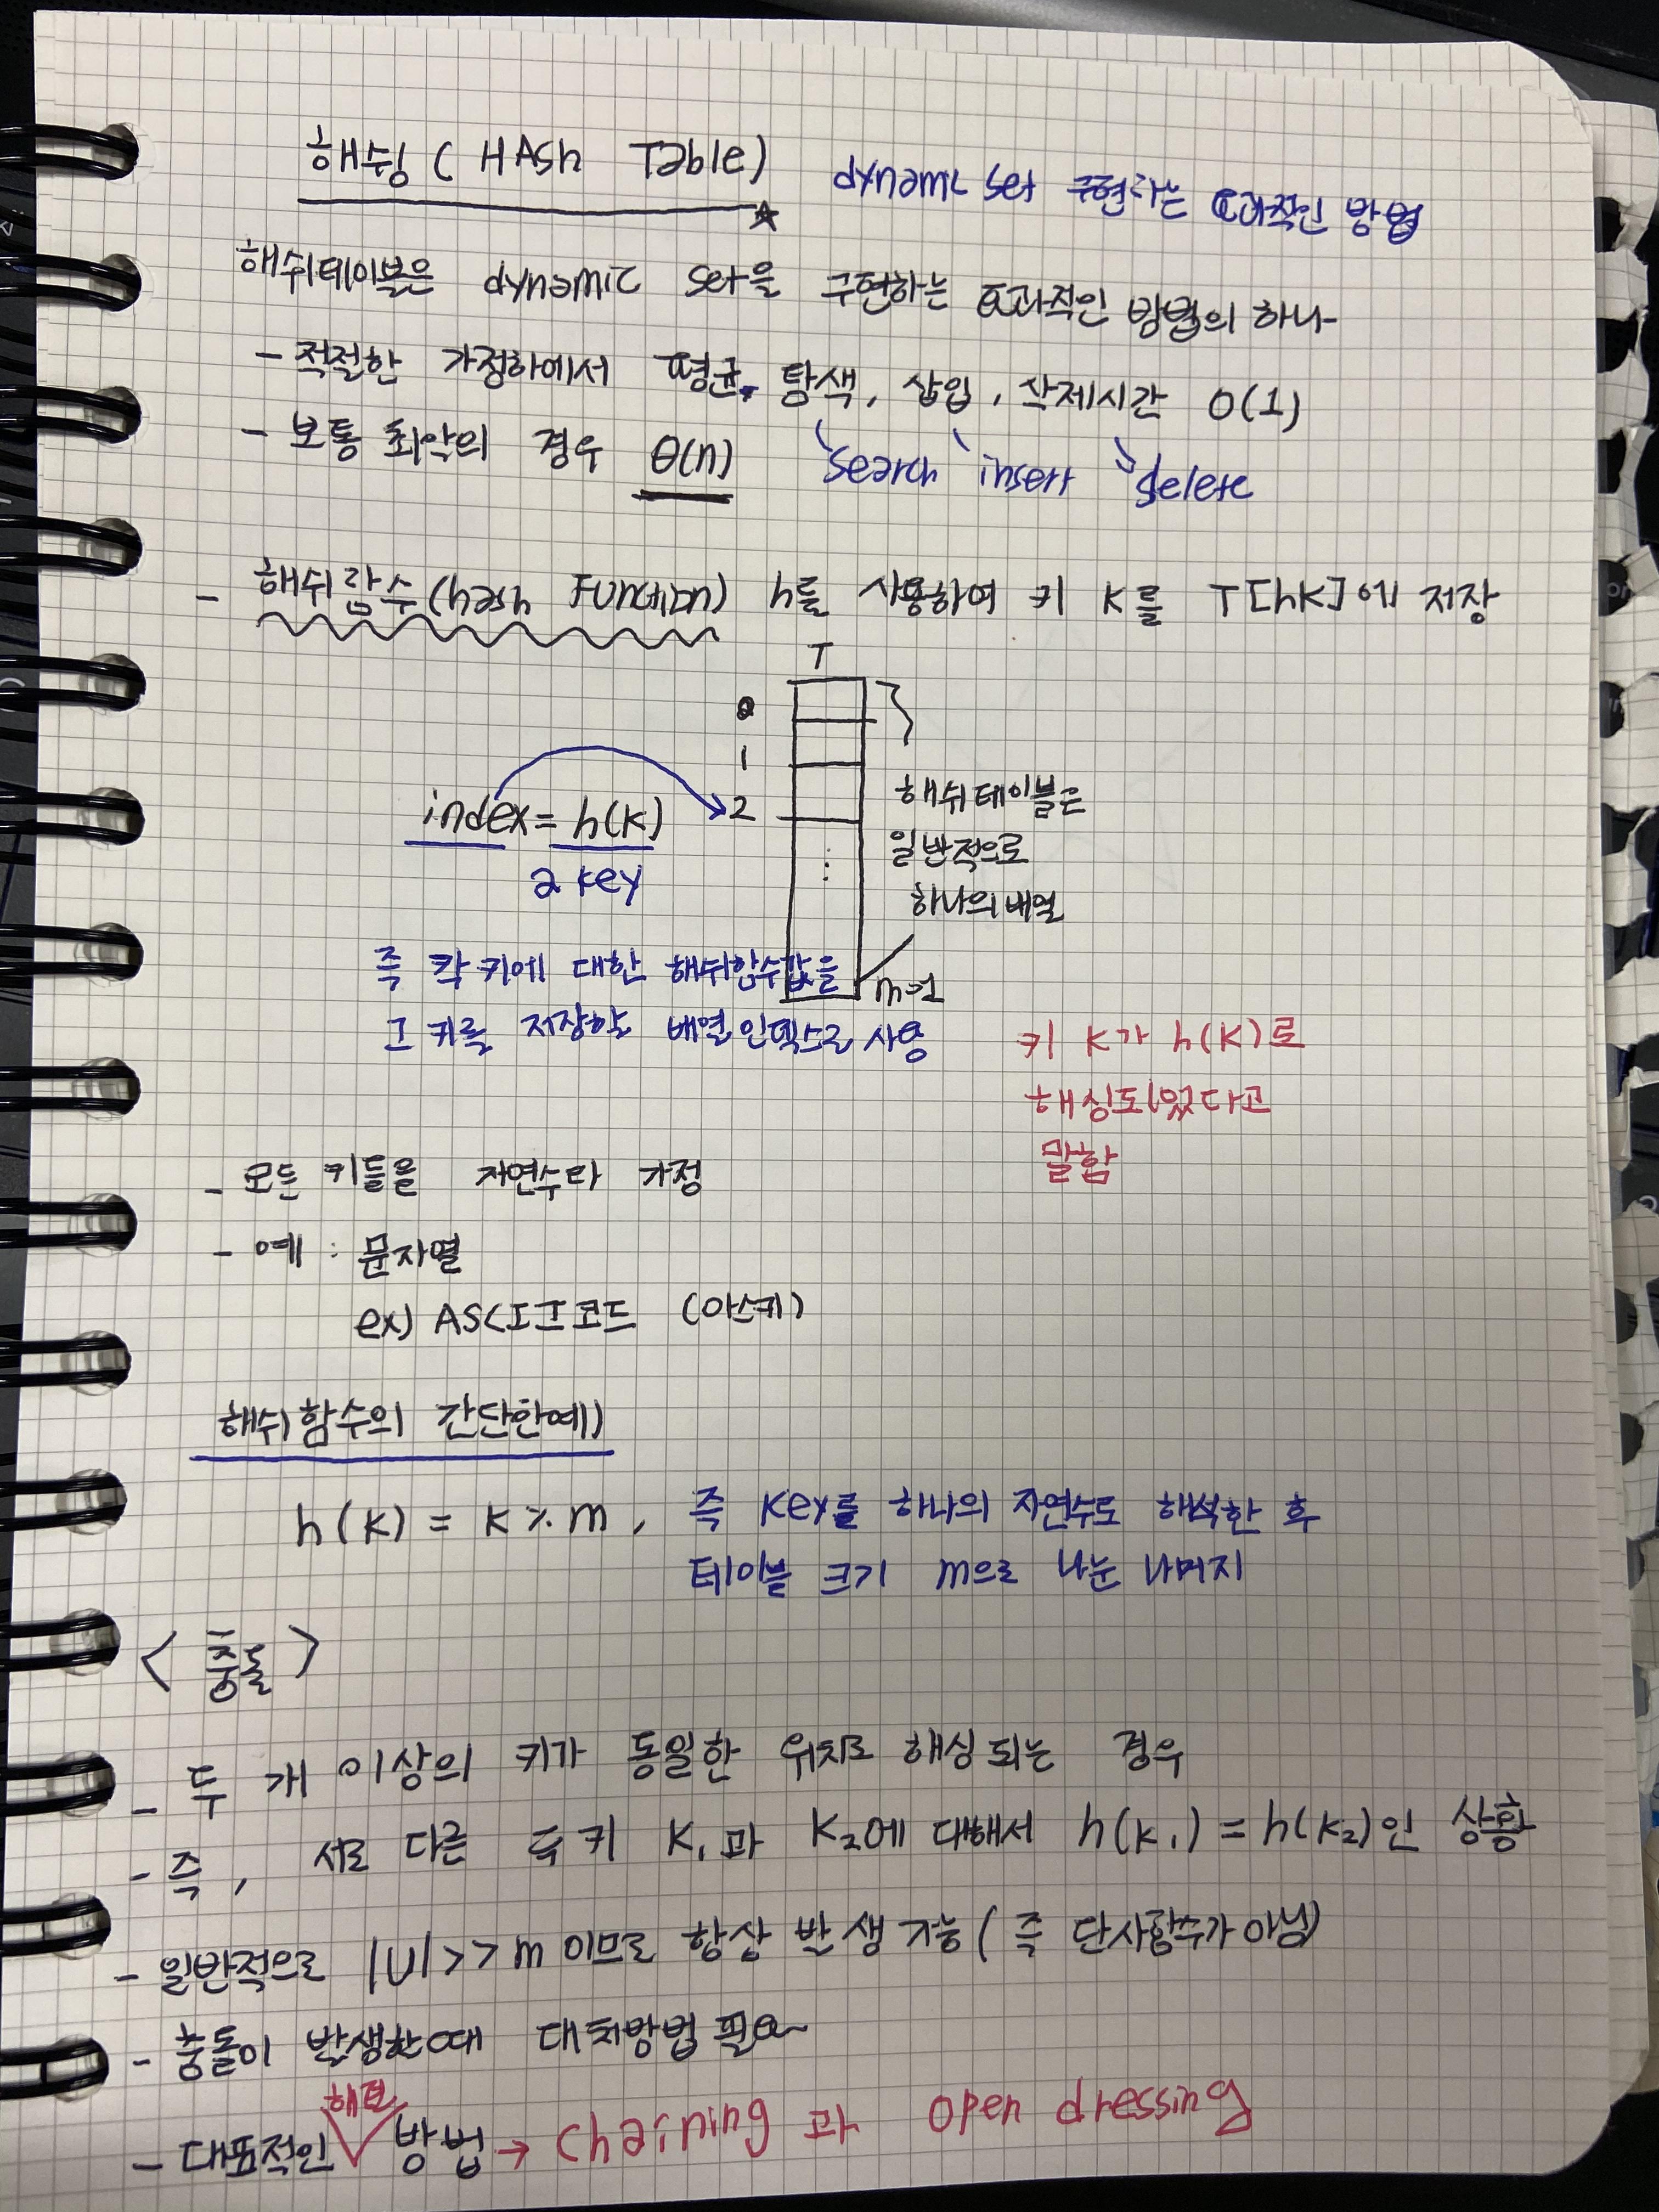 해쉬 (HAsh Table)
dynamic set 구현하는 효과적인 방법
해쉬테이블은 dynamic set을 구현하는 효과적인 방법의 하나
- 적절한 가정하에서 평균, 탐색, 삽입, 삭제시간 O(1)
- 보통 최악의 경우 Θ(n)
search insert delete
- 해쉬함수 (hash Function) h를 사용하여 키 K를 T[hK]에 저장
T
0
1
index = h(K)
2
a key
해쉬테이블은
일반적으로
하나의 배열
즉 각 키에 대한 해쉬함수값을
m-1
그 키를 저장할 배열 인덱스로 사용
키 K가 h(K)로
해싱되었다고
말함
- 모든 키들을 자연수라 가정
- 예 : 문자열
ex) ASCII코드 (아스키)
해쉬함수의 간단한예)
h(K) = K % m, 즉 Key를 하나의 자연수로 해석한 후
테이블 크기 m으로 나눈 나머지
< 충돌 >
- 두 개 이상의 키가 동일한 위치로 해싱되는 경우
- 즉, 서로 다른 두 키 K₁과 K₂에 대해서 h(K₁) = h(K₂)인 상황
- 일반적으로 |U| >> m 이므로 항상 발생 가능 (즉 단사함수가 아님)
- 충돌이 발생한때 대처방법 필요
해결
- 대표적인 방법 → Chaining 과 open dressing